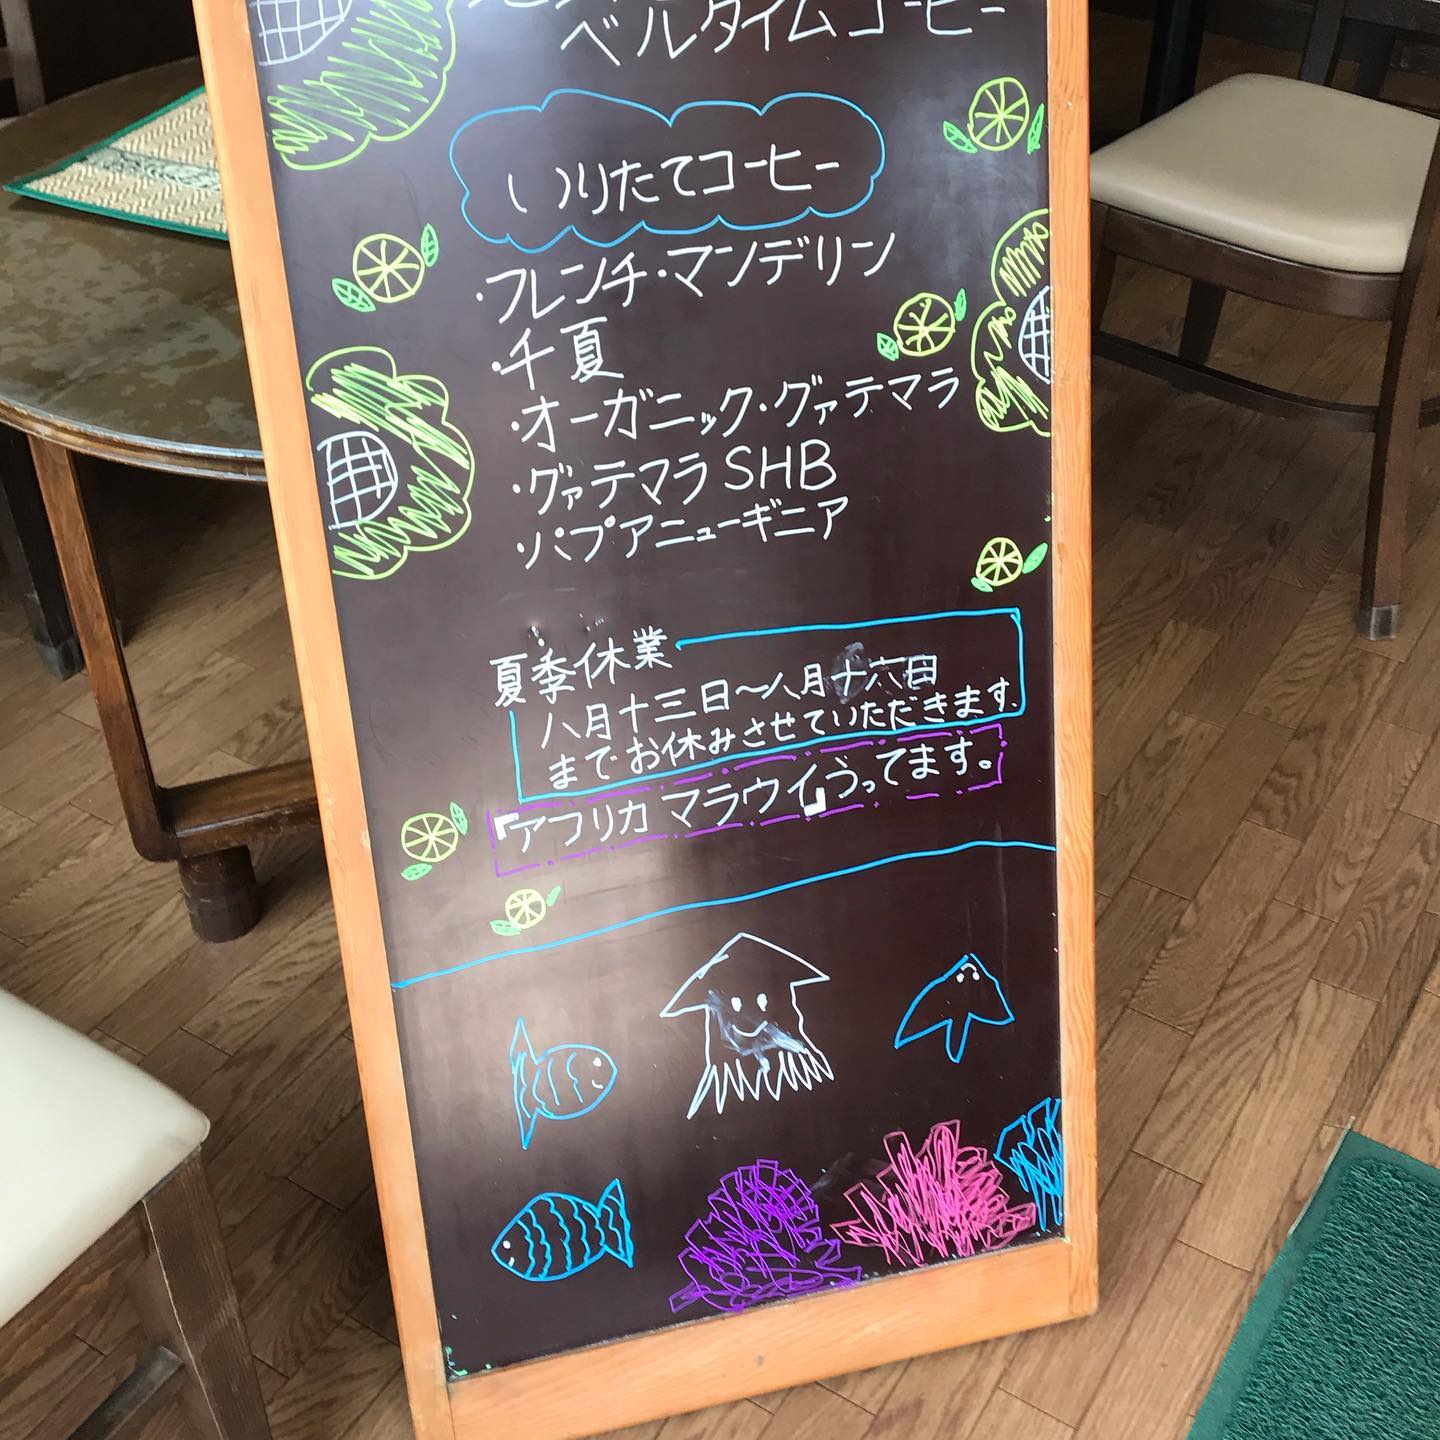 ベルタイムコーヒー
いりたてコーヒー
・フレンチ・マンデリン
・千夏
・オーガニック・グァテマラ
・グァテマラSHB
・パプアニューギニア
夏季休業
八月十三日～八月十六日
までお休みさせていただきます.
『アフリカ マラウイ』うってます。